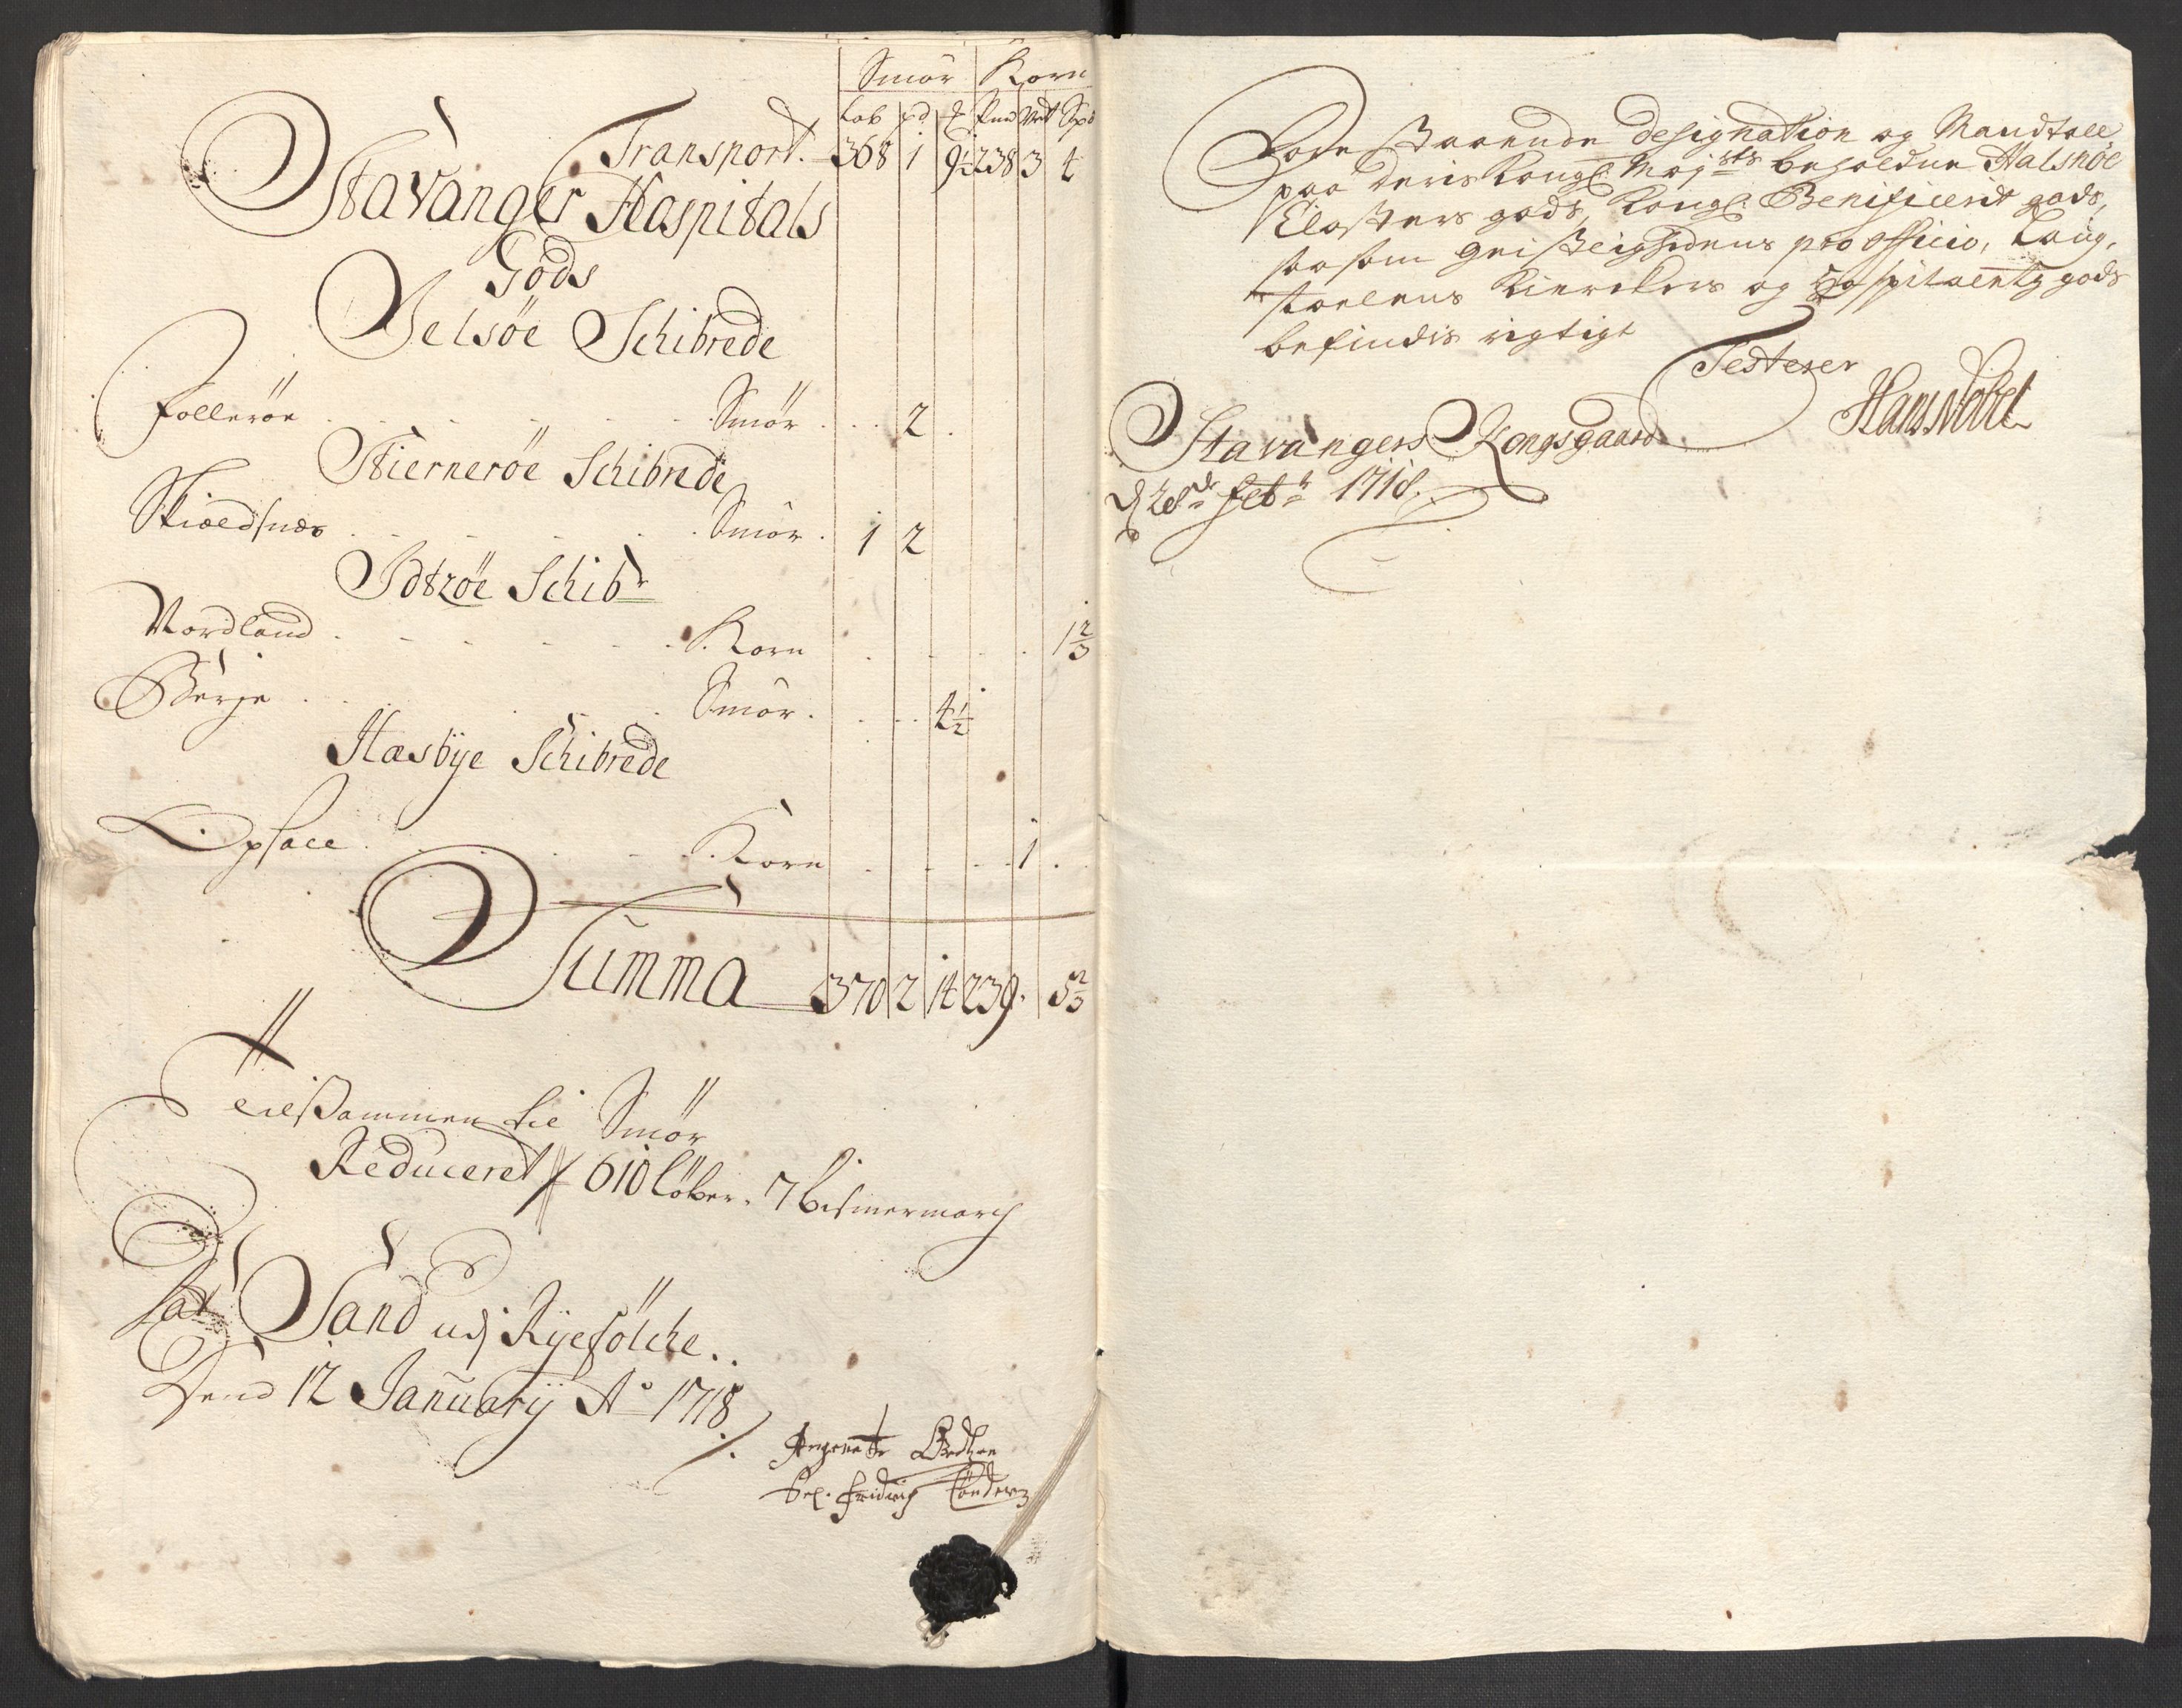 Smör Korn
Løb pd Pund Vet Spd
Transport. 368 1 9½ 238 3 4
Stavanger Hospitals
Gods
Jelsöe Schibrede
Follerøe Smör 2
Stierneröe Schibrede
Skioldsnes Smör 1 2
Idtzöe Schibr
Nordland Korn 1⅔
Berje Smör 4½
Hæsbye Schibrede
Opsale Korn 1
Summa 370 2 14 239 5⅔
Tilsammen til Smör
Reduceret 610 löber. 7 bismermarch
Dat Sand udj Ryefölche.
Dend 12 January Ao 1718
Sel. Fridrich
Forestaaende Designation og Mandtall
paa deris Kongl: Maysts beholdne Halsnöe
Closters gods, Kongl: Benificerit gods,
saasom geistlighedens pro officio, Laug,
stoelens Kierckers og Hospitalentz gods
befindis rigtigt
Testerer
Hans Nobel
Stavangers Kongsgaard
d 28de Febr 1718.